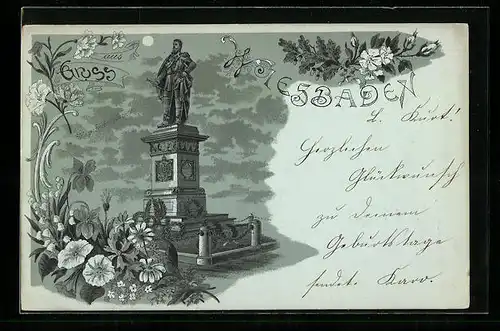 Gruss
aus
WIESBADEN
L. Kurt!
Herzlichen
Glückwunsch
zu Deinem
Geburtstage
sendet. Karo.